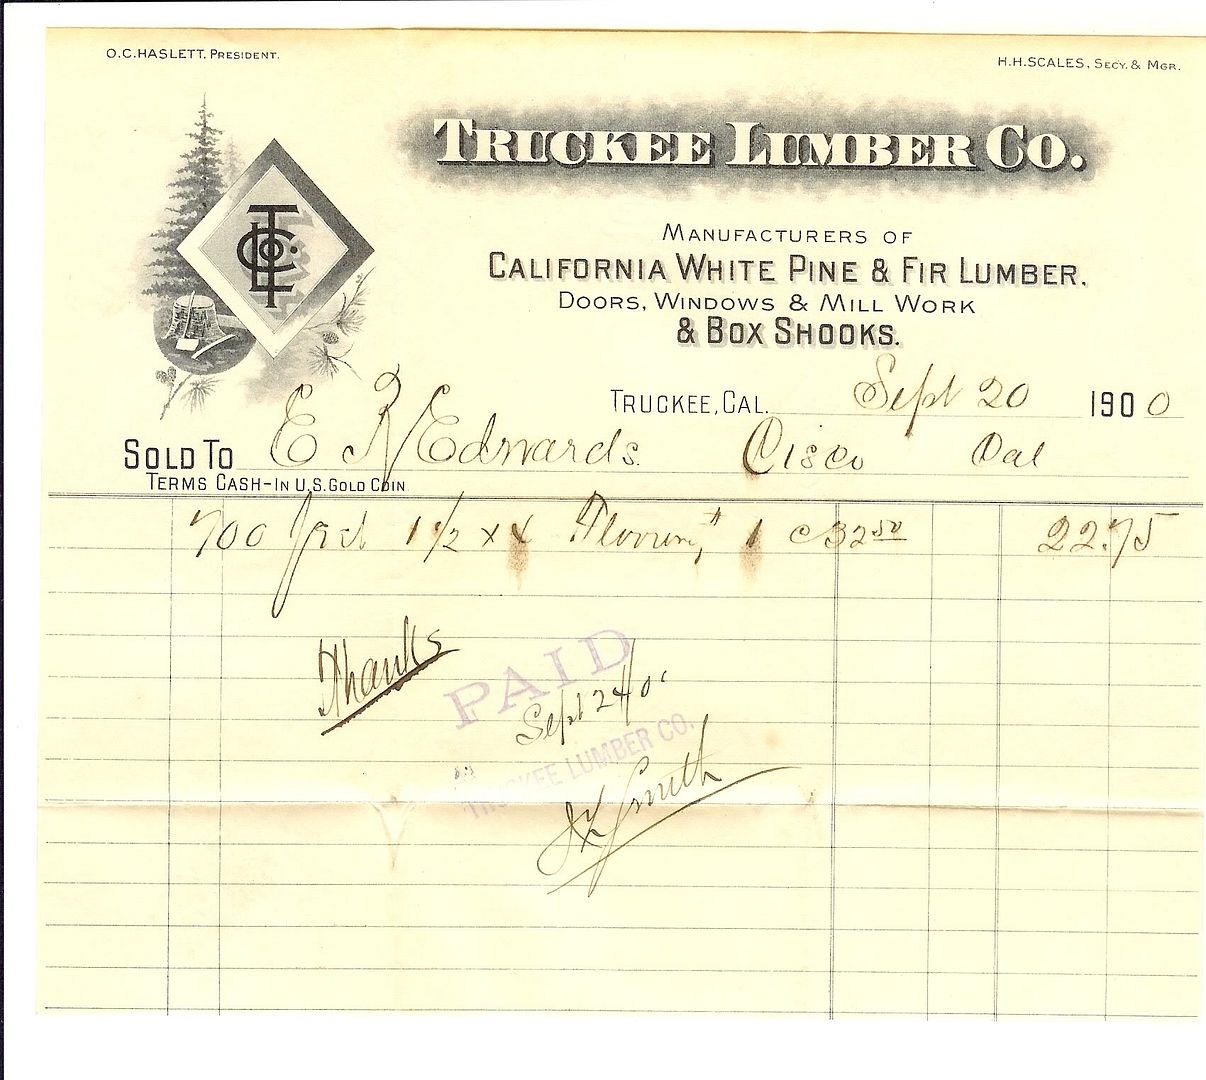 O.C. HASLETT, PRESIDENT.
H.H. SCALES, SECY. & MGR.
TRUCKEE LUMBER CO.
T L Co.
MANUFACTURERS OF
CALIFORNIA WHITE PINE & FIR LUMBER.
DOORS, WINDOWS & MILL WORK
& BOX SHOOKS.
TRUCKEE, CAL. Sept 20 1900
SOLD TO E R Edwards. Cisco Cal
TERMS CASH-IN U.S. GOLD COIN
700 feet 1 1/2 x 4 Flooring # 1 @ 32 50 22.75
Thanks
PAID
Sept 24 0
TRUCKEE LUMBER CO.
Smith